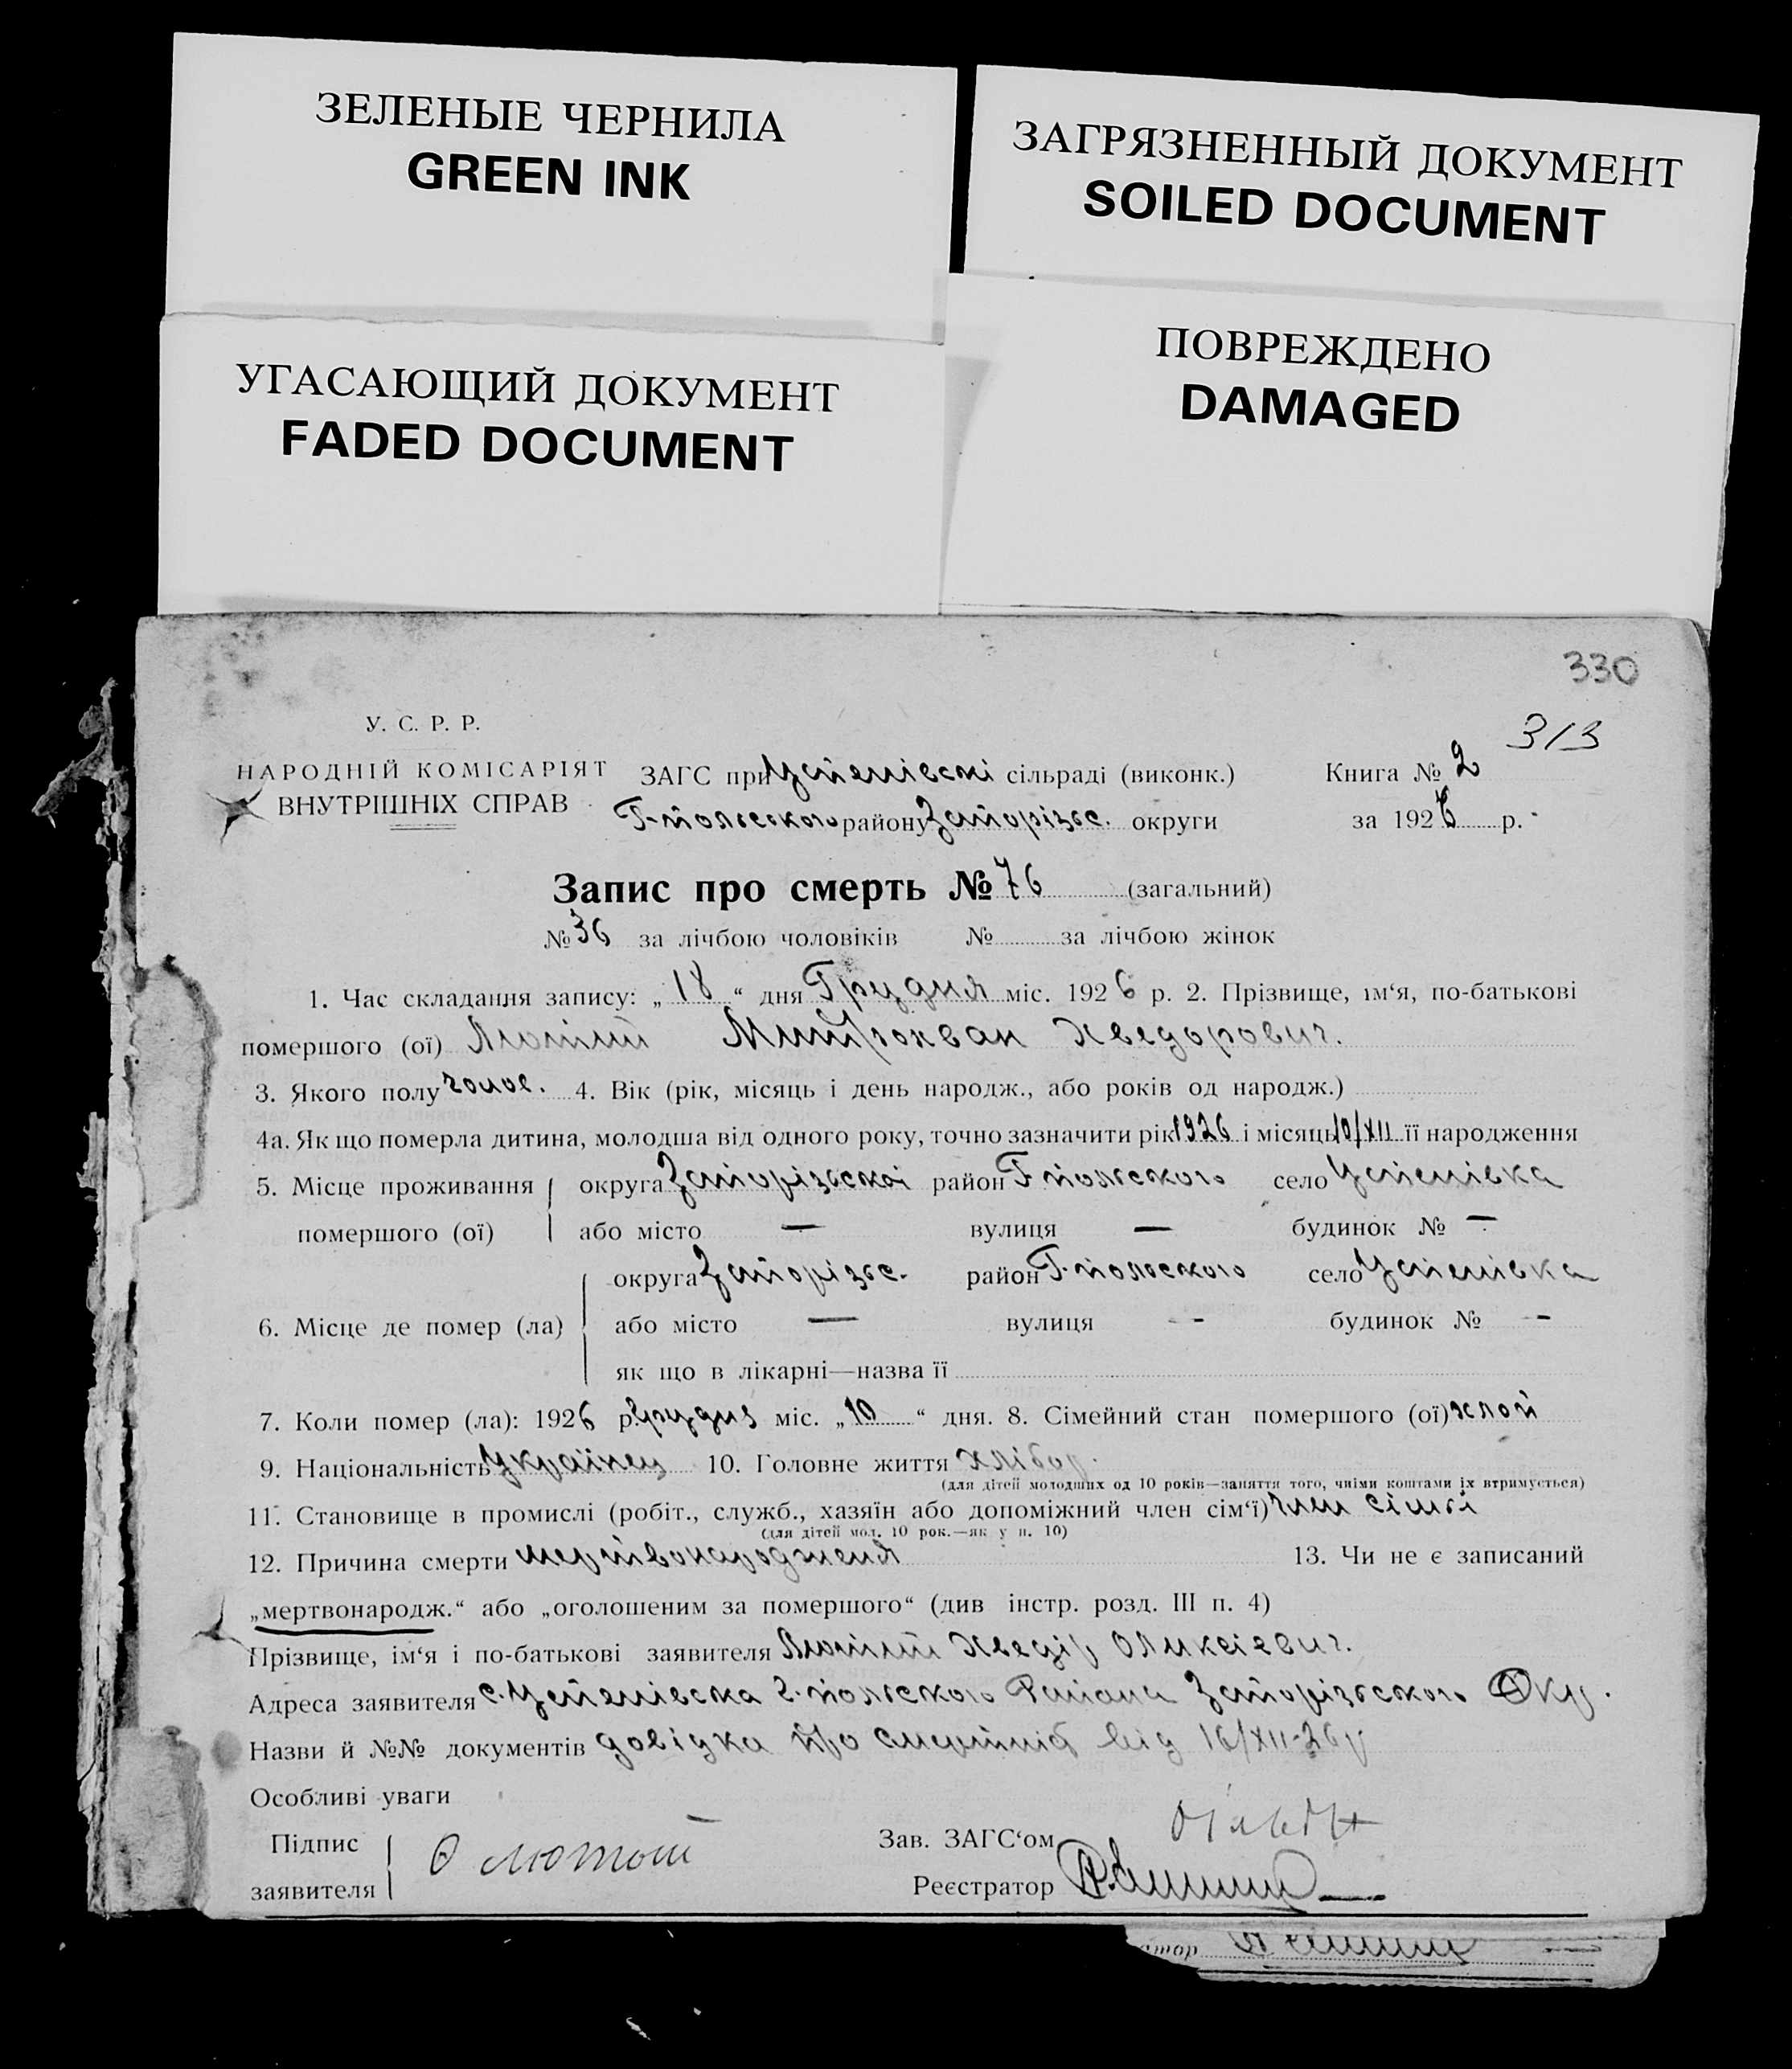 ЗЕЛЕНЫЕ ЧЕРНИЛА
GREEN INK
ЗАГРЯЗНЕННЫЙ ДОКУМЕНТ
SOILED DOCUMENT
УГАСАЮЩИЙ ДОКУМЕНТ
FADED DOCUMENT
ПОВРЕЖДЕНО
DAMAGED
330
313
У. С. Р. Р.
НАРОДНІЙ КОМІСАРІЯТ
ВНУТРІШНІХ СПРАВ
ЗАГС при Успенівскі сільраді (виконк.) Книга № 2
Г-польського району Запорізьс. округи за 1926 р.
Запис про смерть № 76 (загальний)
№ 36 за лічбою чоловіків № за лічбою жінок
1. Час складання запису: „18“ дня Грудня міс. 1926 р. 2. Прізвище, ім‘я, по-батькові
помершого (ої) Лютий Митрохван Хведорович.
3. Якого полу чолов. 4. Вік (рік, місяць і день народж., або років од народж.)
4а. Як що померла дитина, молодша від одного року, точно зазначити рік 1926 і місяць 10/XII її народження
5. Місце проживання округа Запорізьскої район Г польского село Успенівка
помершого (ої) або місто — вулиця — будинок № —
округа Запорізьс. район Г-польского село Успенівка
6. Місце де помер (ла) або місто — вулиця - будинок № -
як що в лікарні—назва її
7. Коли помер (ла): 1926 р. грудня міс. „10“ дня. 8. Сімейний стан помершого (ої) хлой
9. Національність Українец 10. Головне життя Хлібор.
(для дітей молодших од 10 років—заняття того, чиїми коштами їх втримується)
11. Становище в промислі (робіт., служб., хазяїн або допоміжний член сім‘ї) член сімьі
(для дітей мол. 10 рок.—як у п. 10)
12. Причина смерти мертвонародженя 13. Чи не є записаний
„мертвонародж.“ або „оголошеним за помершого“ (див інстр. розд. III п. 4)
Прізвище, ім‘я і по-батькові заявителя Лютий Хведір Оликсієвич.
Адреса заявителя с. Успенівска Г.польского Района Запорізьского Окр.
Назви й №№ документів довідка про смертніб від 16/XII-26 р
Особливі уваги
Підпис
заявителя Ѳ лютой
Зав. ЗАГС‘ом
Реєстратор